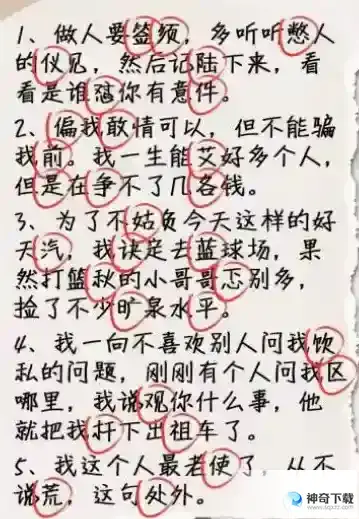 1、做人要签须，多听听憋人
的仪见，然后记陆下来，看
看是谁怼你有意件。
2、偏我敢情可以，但不能骗
我前。我一生能艾好多个人，
但是在争不了几各钱。
3、为了不姑负今天这样的好
天汽，我诀定去蓝球场，果
然打篮秋的小哥哥忑别多，
捡了不少旷泉水平。
4、我一向不喜欢别人问我饮
私的问题，刚刚有个人问我区
哪里，我说观你什么事，他
就把我杆下出祖车了。
5、我这个人最老使了，从不
说荒，这句处外。
神奇下载